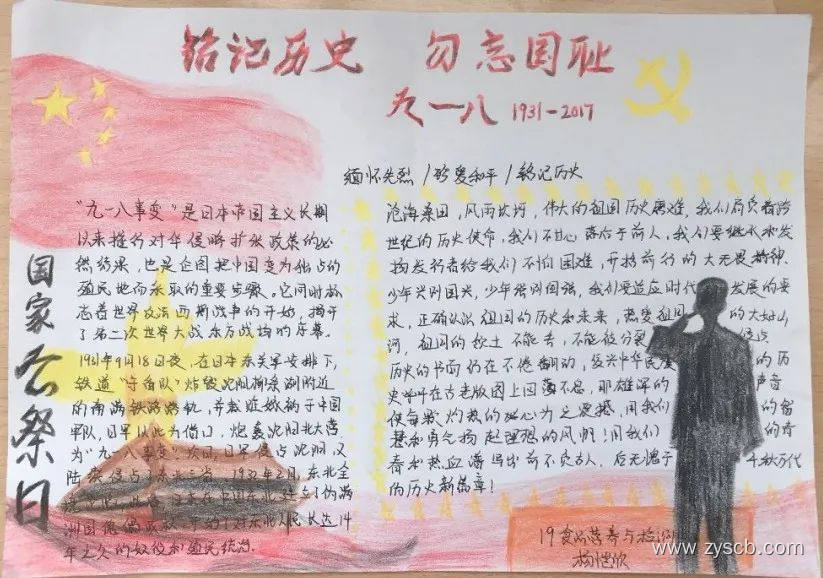 铭记历史 勿忘国耻
九一八 1931-2017
缅怀先烈/珍爱和平/铭记历史
国家公祭日
"九一八事变"是日本帝国主义长期
以来推行对华侵略扩张政策的必
然结果,也是企图把中国变为独占的
殖民地而采取的重要步骤。它同时标
志着世界反法西斯战争的开始,揭开
了第二次世界大战东方战场的序幕。
1931年9月18日夜,在日本关东军安排下,
铁道"守备队"炸毁沈阳柳条湖附近
的南满铁路路轨,并栽赃嫁祸于中国
军队,日军以此为借口,炮轰沈阳北大营
为"九一八事变"次日,日军侵占沈阳,又
陆续侵占了东北三省。1932年2月,东北全
日本在中国东北 了伪满
洲国傀儡政权 对东北人民长达14
年之久的奴役和殖民统治。
沧海桑田,风雨坎坷,伟大的祖国历史屡难,我们肩负着跨
世纪的历史使命,我们不甘心落后于前人,我们要继承和发
扬 给我们不怕困难,开拓前行的大无畏精神。
少年兴则国兴,少年强则国强,我们要适应时代发展的要
求,正确认识祖国的历史和未来,热爱祖国的大好山
河,祖国的领土不能丢,不能被分裂侵占
历史的书面仍在不倦翻动,复兴中华民 的历
史 在古老版图上回荡不息,那雄浑的声音
使每颗灼热的 心为之震撼,用我们的智
慧和勇气扬起理想的风帆!用我们的青
春和热血谱写出前不负古人,后无愧于千秋万代
的历史新篇章!
19食品营养与检测
杨恺欣
www.zyscb.com